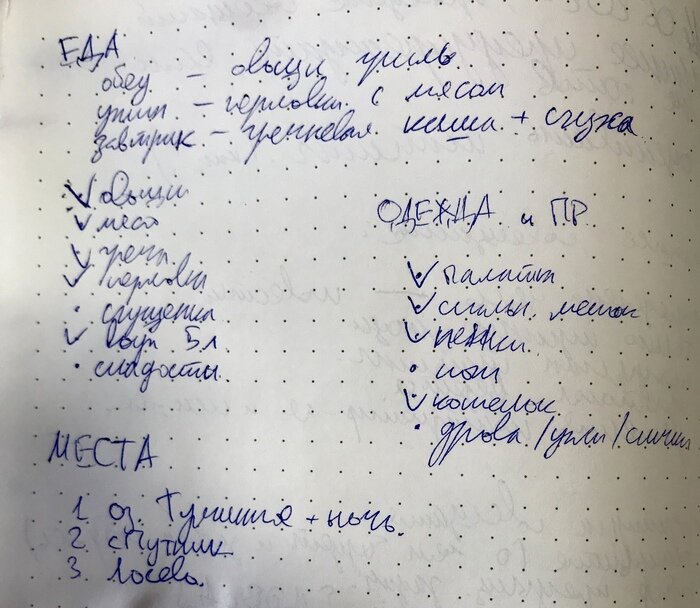 ЕДА
обед – овощи гриль
ужин – перловка с мясом
завтрак – гречневая каша + сгуха
овощи
мясо
гречн.
перловка
сгущенка
вода 5л
сладости
ОДЕЖДА и ПР
палатка
спальн. мешок
пенки
нож
котелок
дрова / угли / спички
МЕСТА
1. оз. + ночь.
2. спутник
3. Лосево.